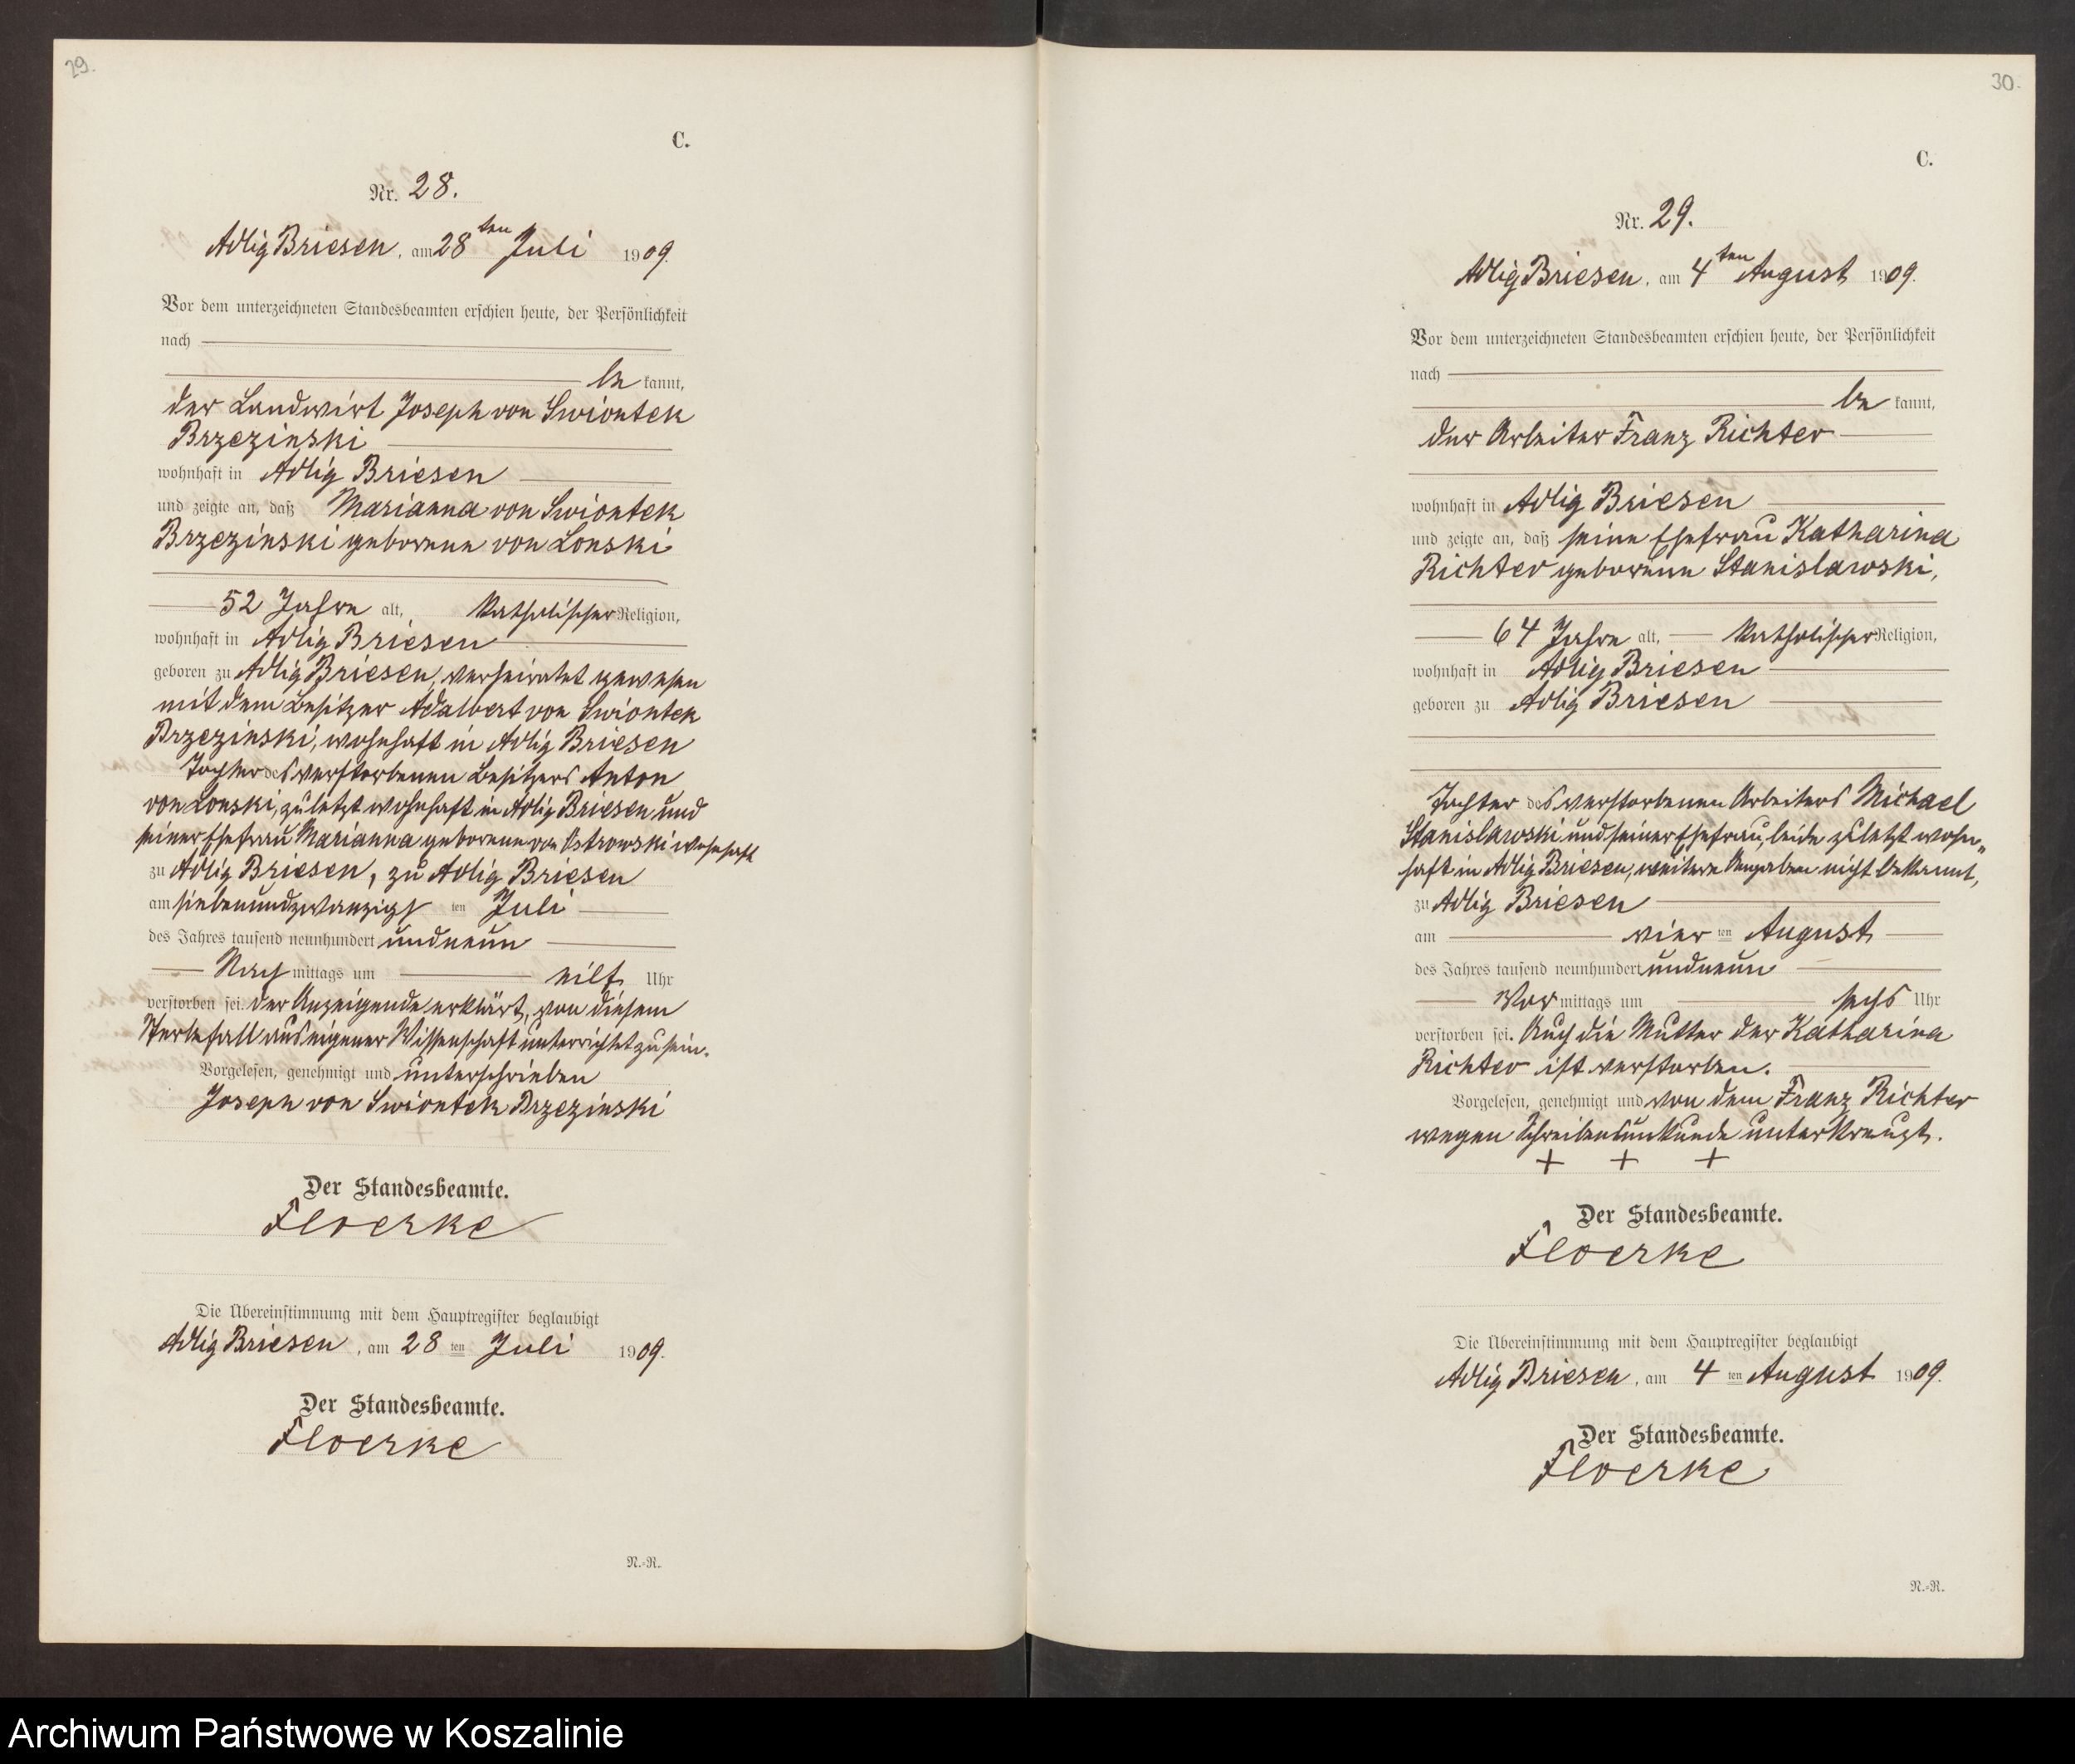 29.
C.
Nr. 28.
Adlig Briesen, am 28ten Juli 1909.
Vor dem unterzeichneten Standesbeamten erschien heute, der Persönlichkeit
nach
be kannt,
der Landwirt Joseph von Swiontek
Brzezinski
wohnhaft in Adlig Briesen
und zeigte an, daß Marianna von Swiontek
Brzezinski geborene von Lonski
52 Jahre alt, katholischer Religion,
wohnhaft in Adlig Briesen
geboren zu Adlig Briesen, verheiratet gewesen
mit dem Besitzer Adalbert von Swiontek
Brzezinski, wohnhaft in Adlig Briesen
Tochter des verstorbenen Besitzers Anton
von Lonski, zuletzt wohnhaft in Adlig Briesen und
seiner Ehefrau Marianna geborene von Ostrowski wohnhaft
zu Adlig Briesen, zu Adlig Briesen
am siebenundzwanzigs ten Juli
des Jahres tausend neunhundert undneun
Nach mittags um elf Uhr
verstorben sei. Der Anzeigende erklärt, von diesem
Sterbefall aus eigener Wissenschaft unterrichtet zu sein.
Vorgelesen, genehmigt und unterschrieben
Joseph von Swiontek Brzezinski
Der Standesbeamte.
Floerke
Die Übereinstimmung mit dem Hauptregister beglaubigt
Adlig Briesen, am 28 ten Juli 1909.
Der Standesbeamte.
Floerke
N.=R.
30.
C.
Nr. 29.
Adlig Briesen, am 4ten August 1909.
Vor dem unterzeichneten Standesbeamten erschien heute, der Persönlichkeit
nach
be kannt,
der Arbeiter Franz Richter
wohnhaft in Adlig Briesen
und zeigte an, daß seine Ehefrau Katharina
Richter geborene Stanislawski,
64 Jahre alt, katholischer Religion,
wohnhaft in Adlig Briesen
geboren zu Adlig Briesen
Tochter des verstorbenen Arbeiters Michael
Stanislawski und seiner Ehefrau, beide zuletzt wohn„
haft in Adlig Briesen, weitere Angaben nicht bekannt,
zu Adlig Briesen
am vier ten August
des Jahres tausend neunhundert undneun
Vor mittags um sechs Uhr
verstorben sei. Auch die Mutter der Katharina
Richter ist verstorben.
Vorgelesen, genehmigt und von dem Franz Richter
wegen Schreibensunkunde unterkreuzt.
+ + +
Der Standesbeamte.
Floerke
Die Übereinstimmung mit dem Hauptregister beglaubigt
Adlig Briesen, am 4 ten August 1909.
Der Standesbeamte.
Floerke
N.=R.
Archiwum Państwowe w Koszalinie